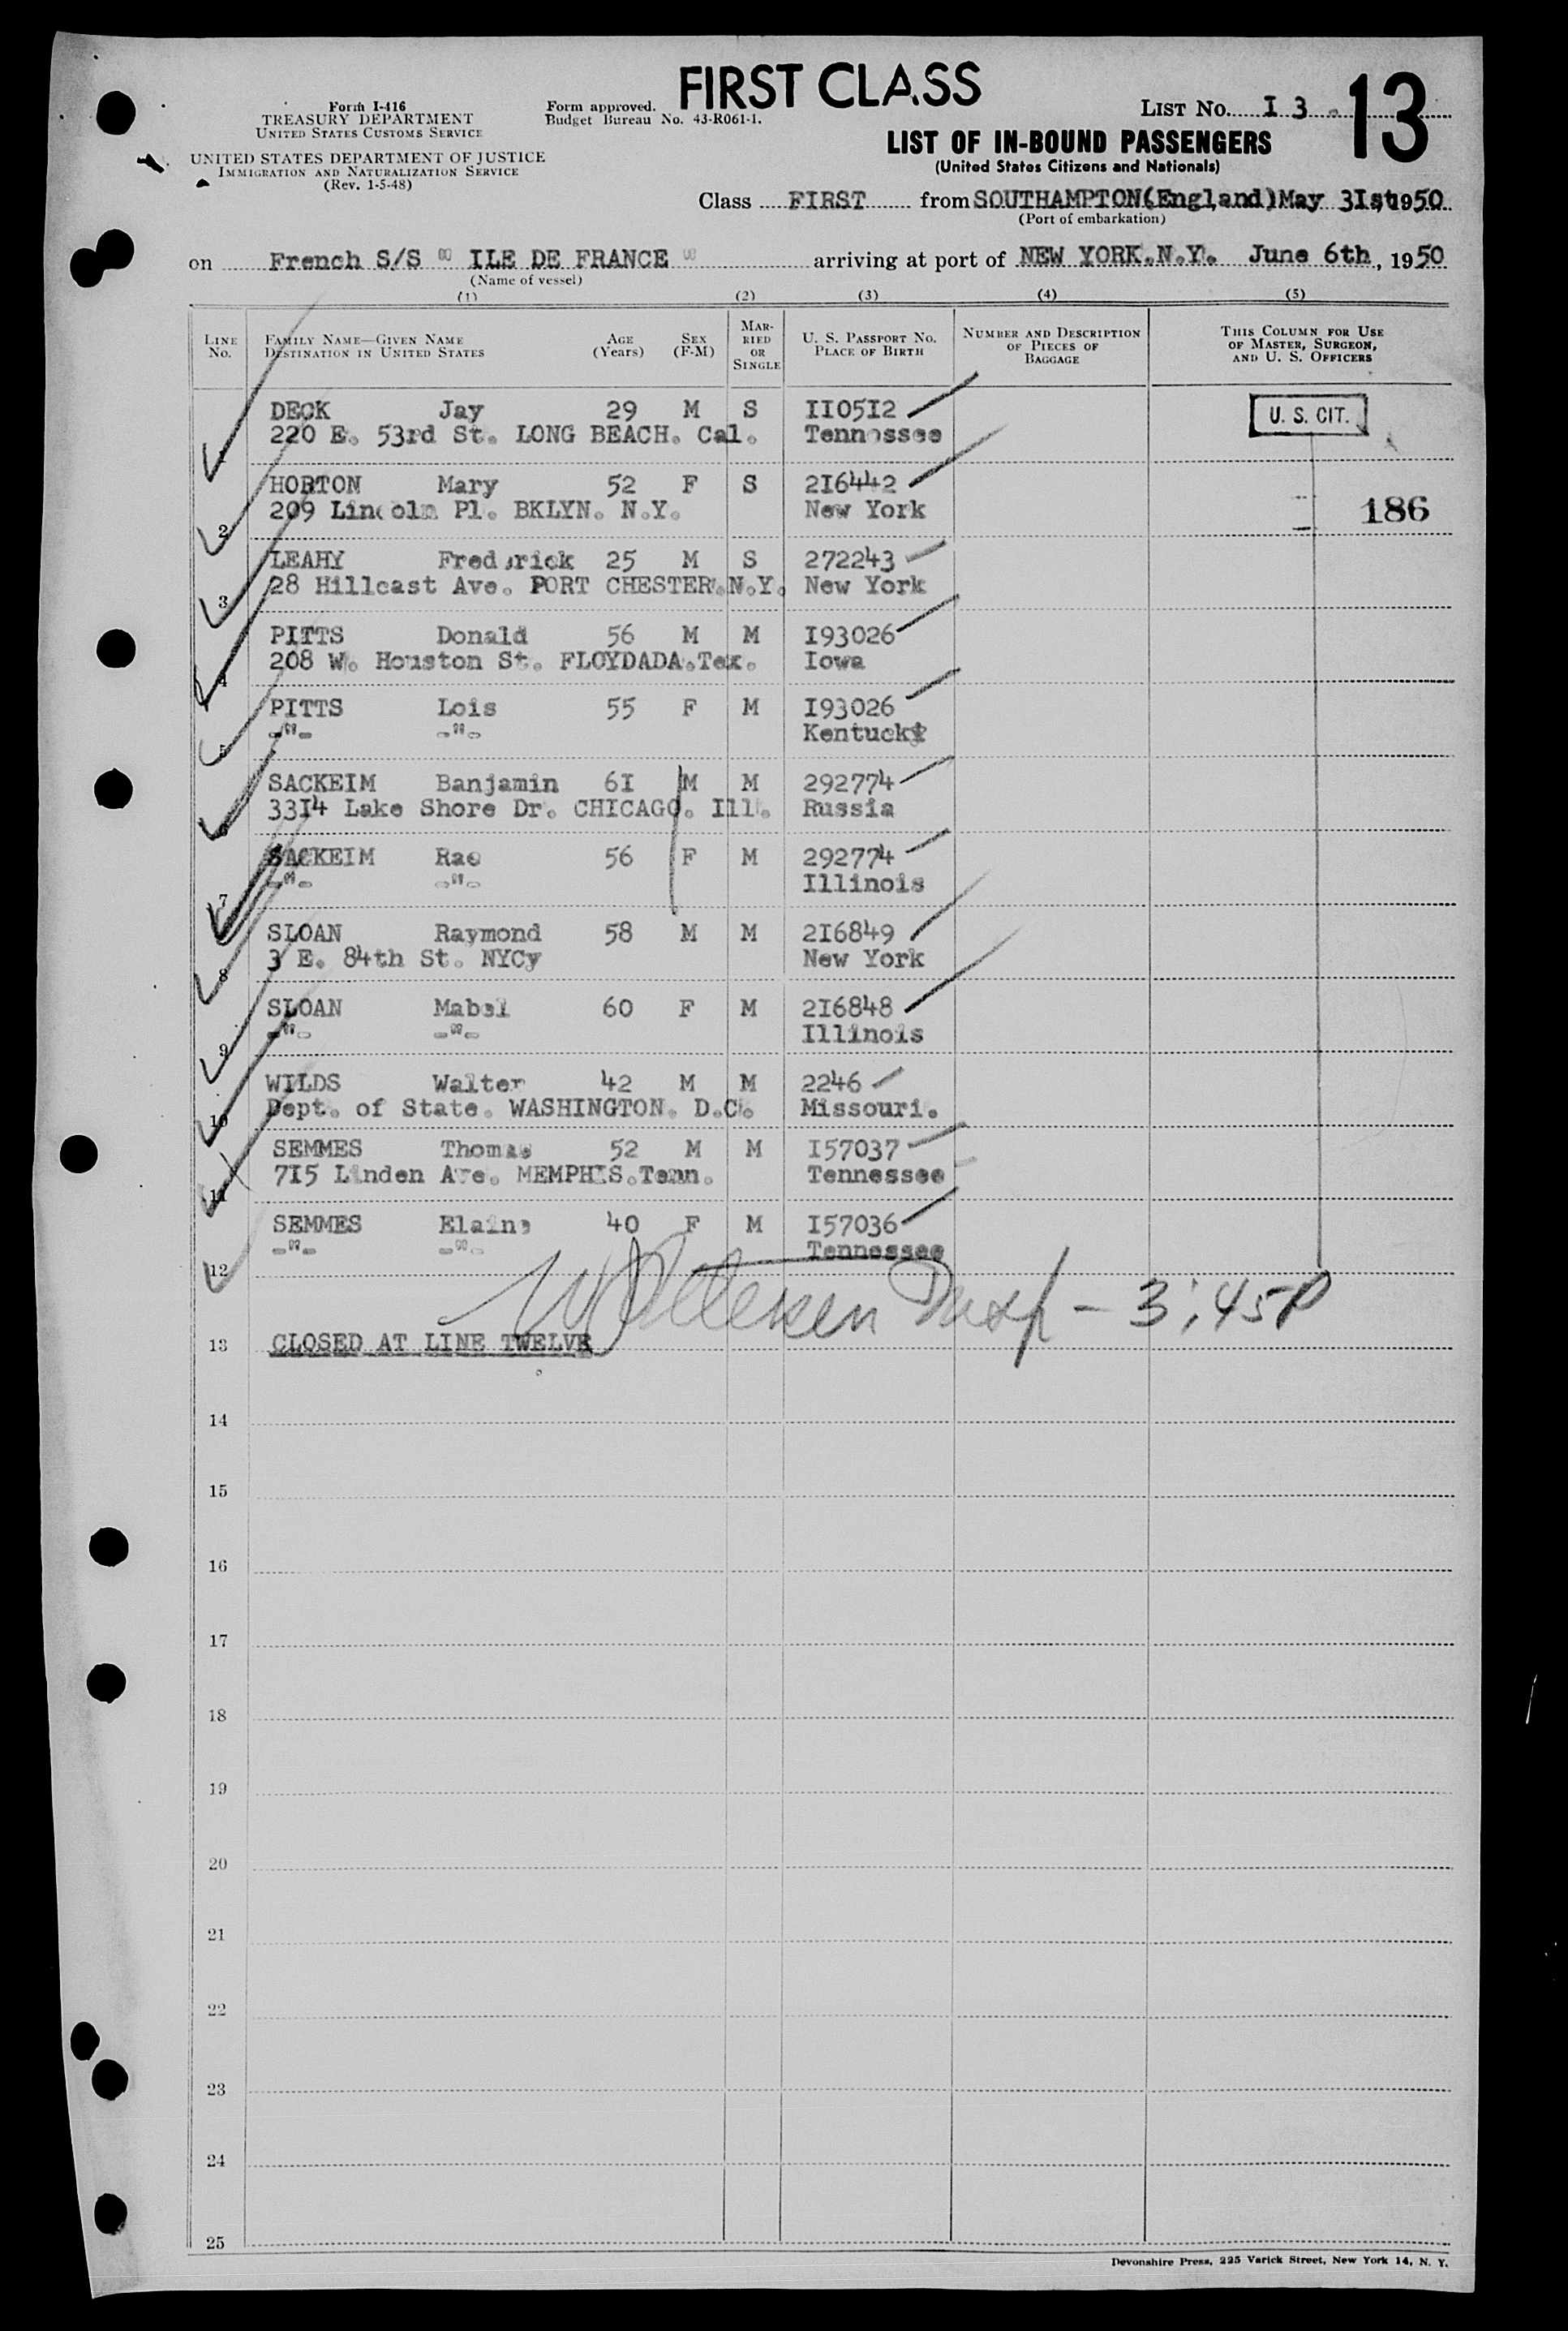 FIRST CLASS
13
Form I-416
TREASURY DEPARTMENT
UNITED STATES CUSTOMS SERVICE
Form approved.
Budget Bureau No. 43-R061-1.
LIST No. I 3
LIST OF IN-BOUND PASSENGERS
(United States Citizens and Nationals)
UNITED STATES DEPARTMENT OF JUSTICE
IMMIGRATION AND NATURALIZATION SERVICE
(Rev. 1-5-48)
Class FIRST from SOUTHAMPTON(England)May 3Ist, 1950
(Port of embarkation)
on French S/S " ILE DE FRANCE " arriving at port of NEW YORK.N.Y. June 6th, 1950
(Name of vessel)
(1) (2) (3) (4) (5)
LINE No. FAMILY NAME—GIVEN NAME DESTINATION IN UNITED STATES AGE (Years) SEX (F-M) MARRIED OR SINGLE U. S. PASSPORT No. PLACE OF BIRTH NUMBER AND DESCRIPTION OF PIECES OF BAGGAGE THIS COLUMN FOR USE OF MASTER, SURGEON, AND U. S. OFFICERS
DECK Jay 29 M S II05I2 U. S. CIT.
220 E. 53rd St. LONG BEACH. Cal. Tennessee
HORTON Mary 52 F S 2I6442
2 209 Lincoln Pl. BKLYN. N.Y. New York 186
LEAHY Frederick 25 M S 272243
3 28 Hillcast Ave. PORT CHESTER.N.Y. New York
PITTS Donald 56 M M I93026
4 208 W. Houston St. FLOYDADA.Tex. Iowa
PITTS Lois 55 F M I93026
5 -"- -"- Kentucky
SACKEIM Banjamin 6I M M 292774
6 33I4 Lake Shore Dr. CHICAGO. Ill. Russia
SACKEIM Rae 56 F M 292774
7 -"- -"- Illinois
SLOAN Raymond 58 M M 2I6849
8 3 E. 84th St. NYCy New York
SLOAN Mabel 60 F M 2I6848
9 -"- -"- Illinois
WILDS Walter 42 M M 2246
10 Dept. of State. WASHINGTON. D.C. Missouri.
SEMMES Thomas 52 M M I57037
11 7I5 Linden Ave. MEMPHIS.Tenn. Tennessee
SEMMES Elaine 40 F M I57036
12 -"- -"- Tennessee
Insp - 3:45P
13 CLOSED AT LINE TWELVE
14
15
16
17
18
19
20
21
22
23
24
25
Devonshire Press, 225 Varick Street, New York 14, N. Y.